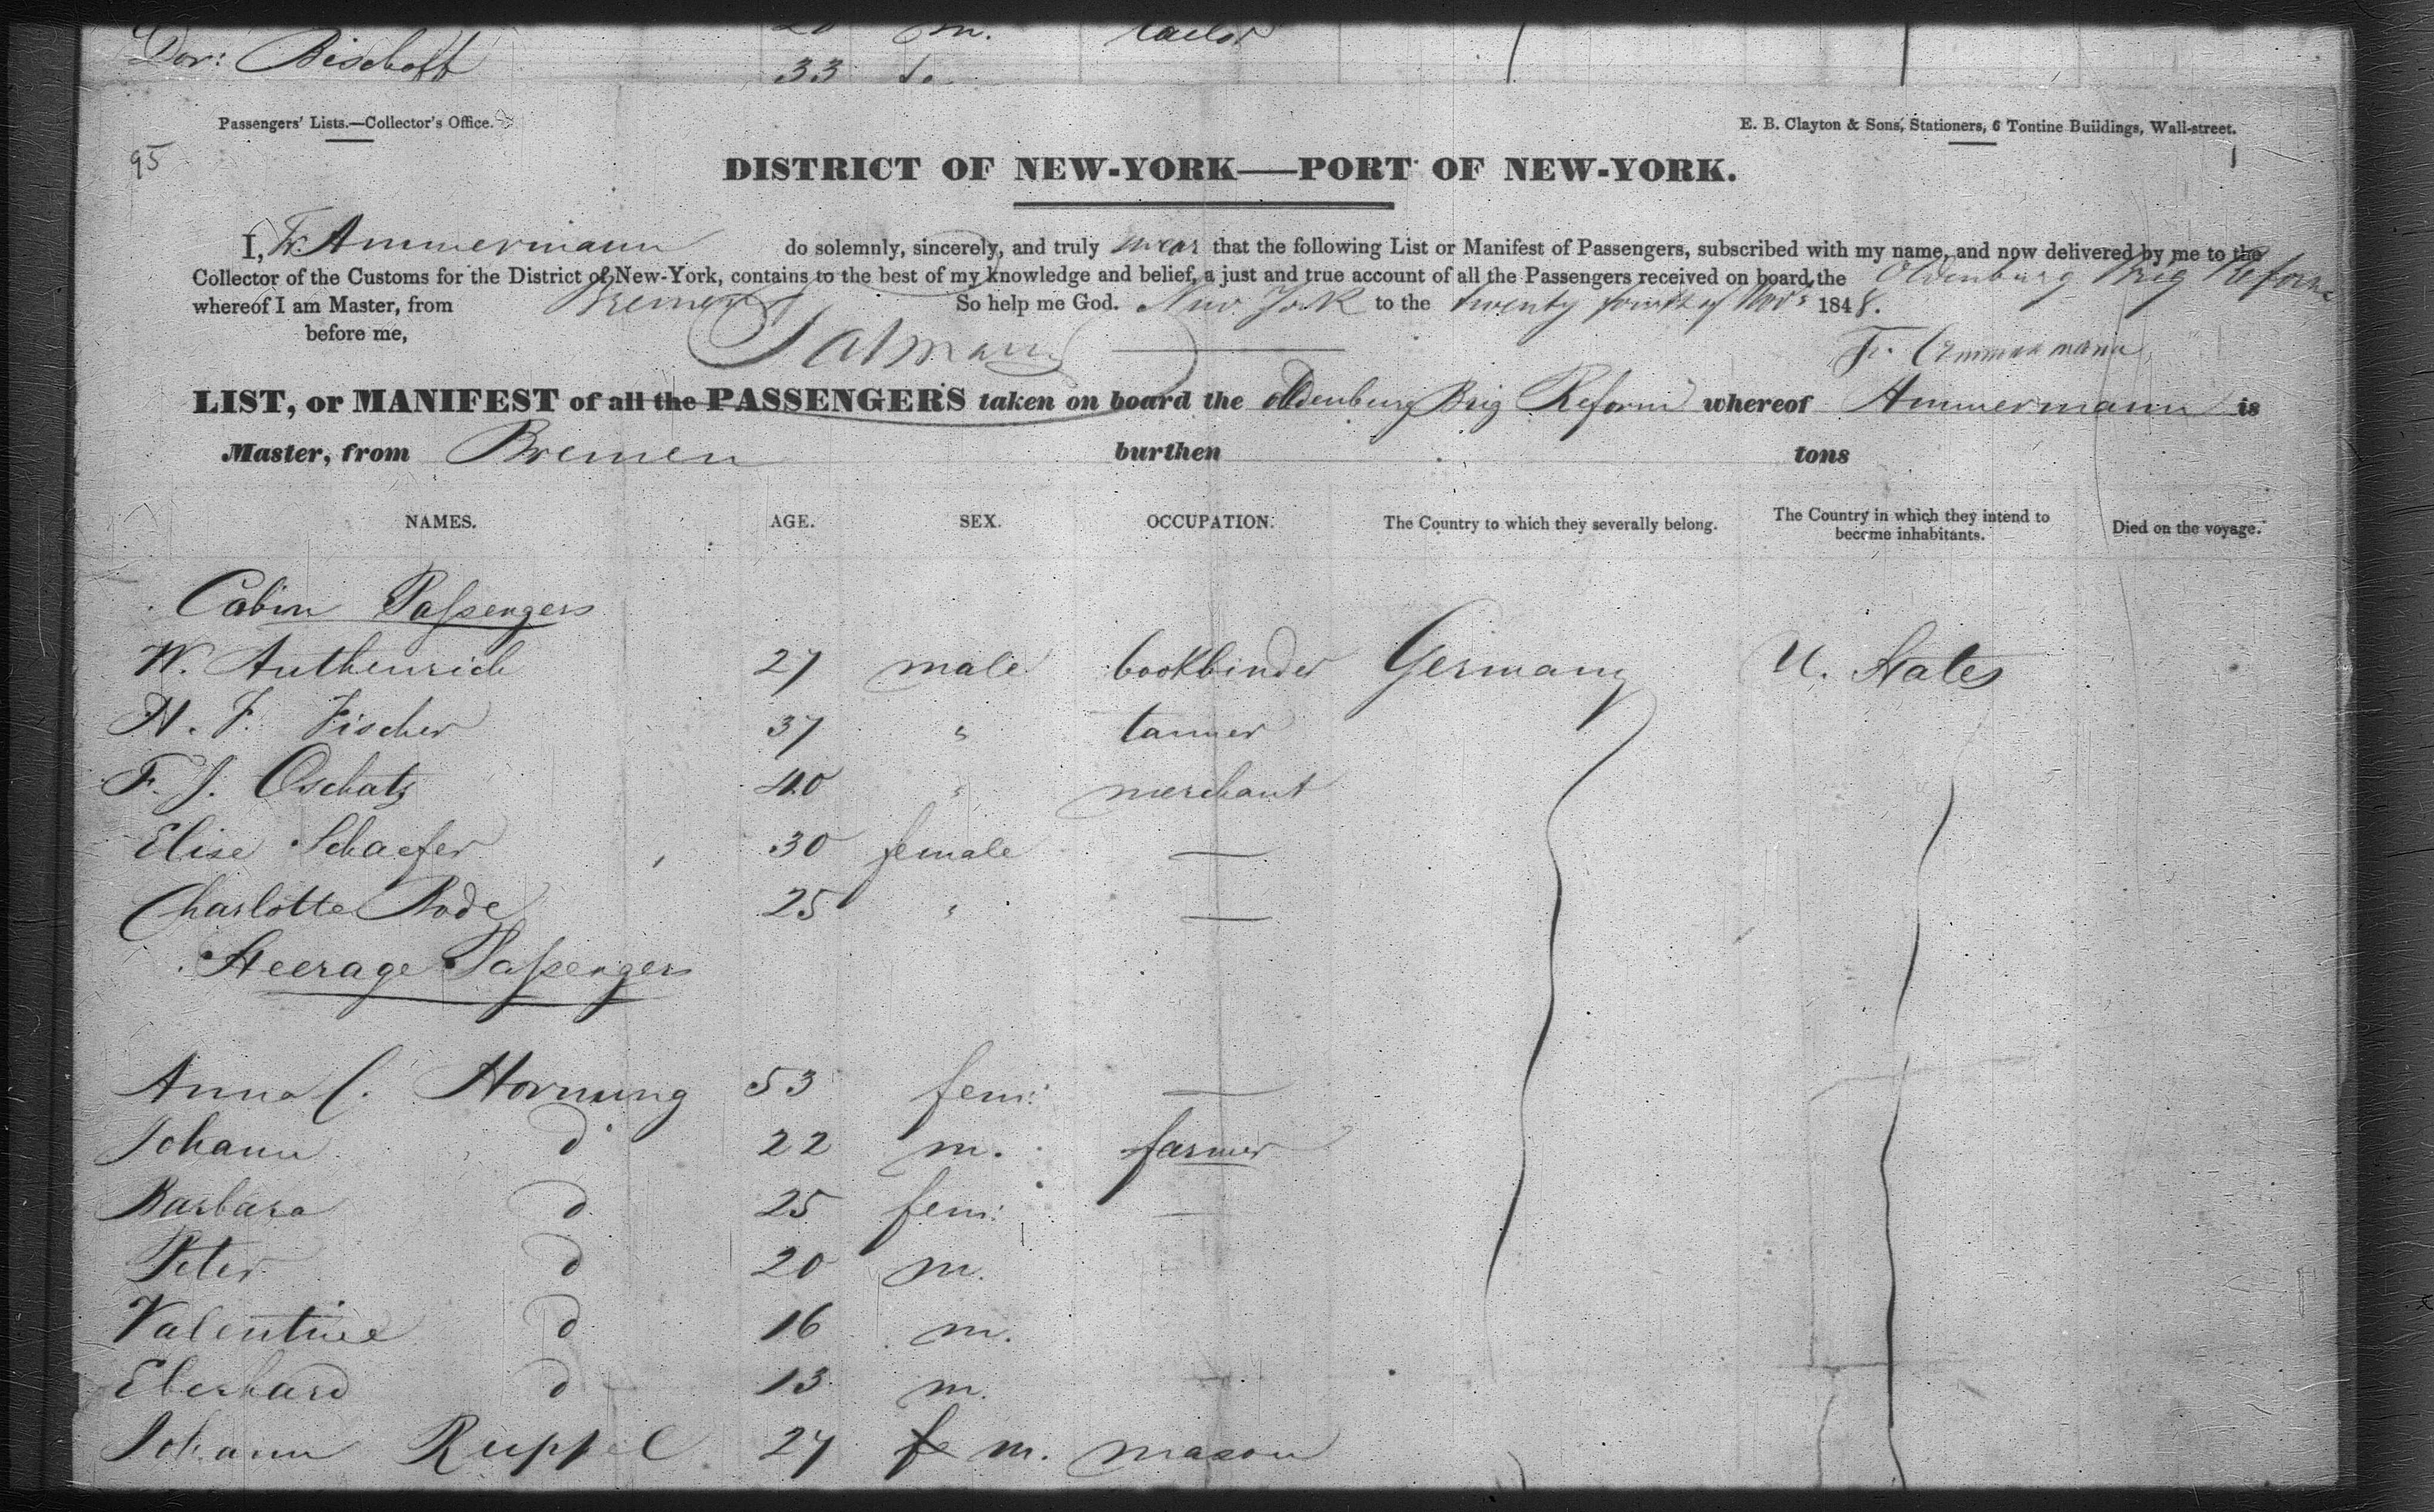 20 m. tailor
Dor: Bischoff 33 do
Passengers' Lists.—Collector's Office.
E. B. Clayton & Sons, Stationers, 6 Tontine Buildings, Wall-street.
95
DISTRICT OF NEW-YORK—PORT OF NEW-YORK.
I, Fr. Ammermann do solemnly, sincerely, and truly swear that the following List or Manifest of Passengers, subscribed with my name, and now delivered by me to the
Collector of the Customs for the District of New-York, contains to the best of my knowledge and belief, a just and true account of all the Passengers received on board the Oldenburg Brig Reform
whereof I am Master, from Bremen So help me God. New York to the twenty fourth of Novr 1848.
before me, Fr. Ammermann
LIST, or MANIFEST of all the PASSENGERS taken on board the Oldenburg Brig Reform whereof Ammermann is
Master, from Bremen burthen tons
NAMES. AGE. SEX. OCCUPATION. The Country to which they severally belong. The Country in which they intend to become inhabitants. Died on the voyage.
Cabin Passengers
W. Authenrich 27 male bookbinder Germany U. States
H. F. Fischer 37 " tanner
F. J. Oschatz 40 " merchant
Elise Schaefer 30 female —
Charlotte Rode 25 " —
Steerage Passengers
Anna C. Hornung 53 fem: —
Johann do 22 m. farmer
Barbara do 25 fem: —
Peter do 20 m.
Valentine do 16 m.
Eberhard do 13 m.
Johann Ruppel 27 fe m. mason